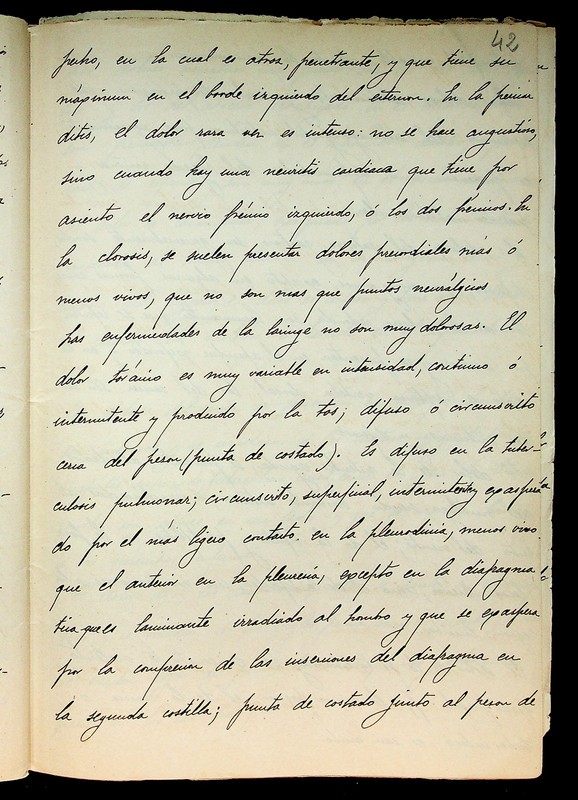 42
pecho, en la cual es atroz, penetrante, y que tiene su
máximum en el borde izquierdo del esternon. En la pericar
ditis, el dolor rara vez es intenso: no se hace angustioso,
sino cuando hay una neuritis cardiaca que tiene por
asiento el nervio frénico izquierdo, ó los dos frénicos. En
la clorosis, se suelen presentar dolores precordiales más ó
menos vivos, que no son mas que puntos neurálgicos
Las enfermedades de la laringe no son muy dolorosas. El
dolor torácico es muy variable en intensidad, continuo ó
intermitente y producido por la tos; difuso ó circunscrito
cerca del pezon (punta de costado). Es difuso en la tuber-
culosis pulmonar; circunscrito, superficial, intermitente y exaspera
do por el más ligero contacto. en la pleurodinia, menos vivo
que el anterior en la pleuresia, excepto en la diafragma
tica que es laminante irradiado al hombro y que se exaspera
por la compresion de las inserciones del diafragma en
la segunda costilla; punta de costado junto al pezon de